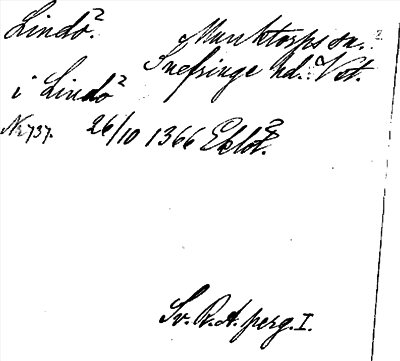 Lindö. Munktorps sn.
Snefringe hd. Vst.
i Lindö
Nr 737. 26/10 1366 Eklöt.
Sv. R. A. perg. I.